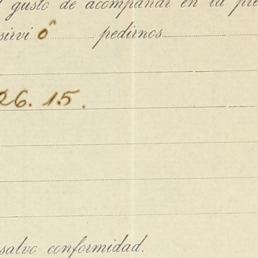 gusto de acompañar en la pre
sirvió pedirnos
26. 15.
salvo conformidad.